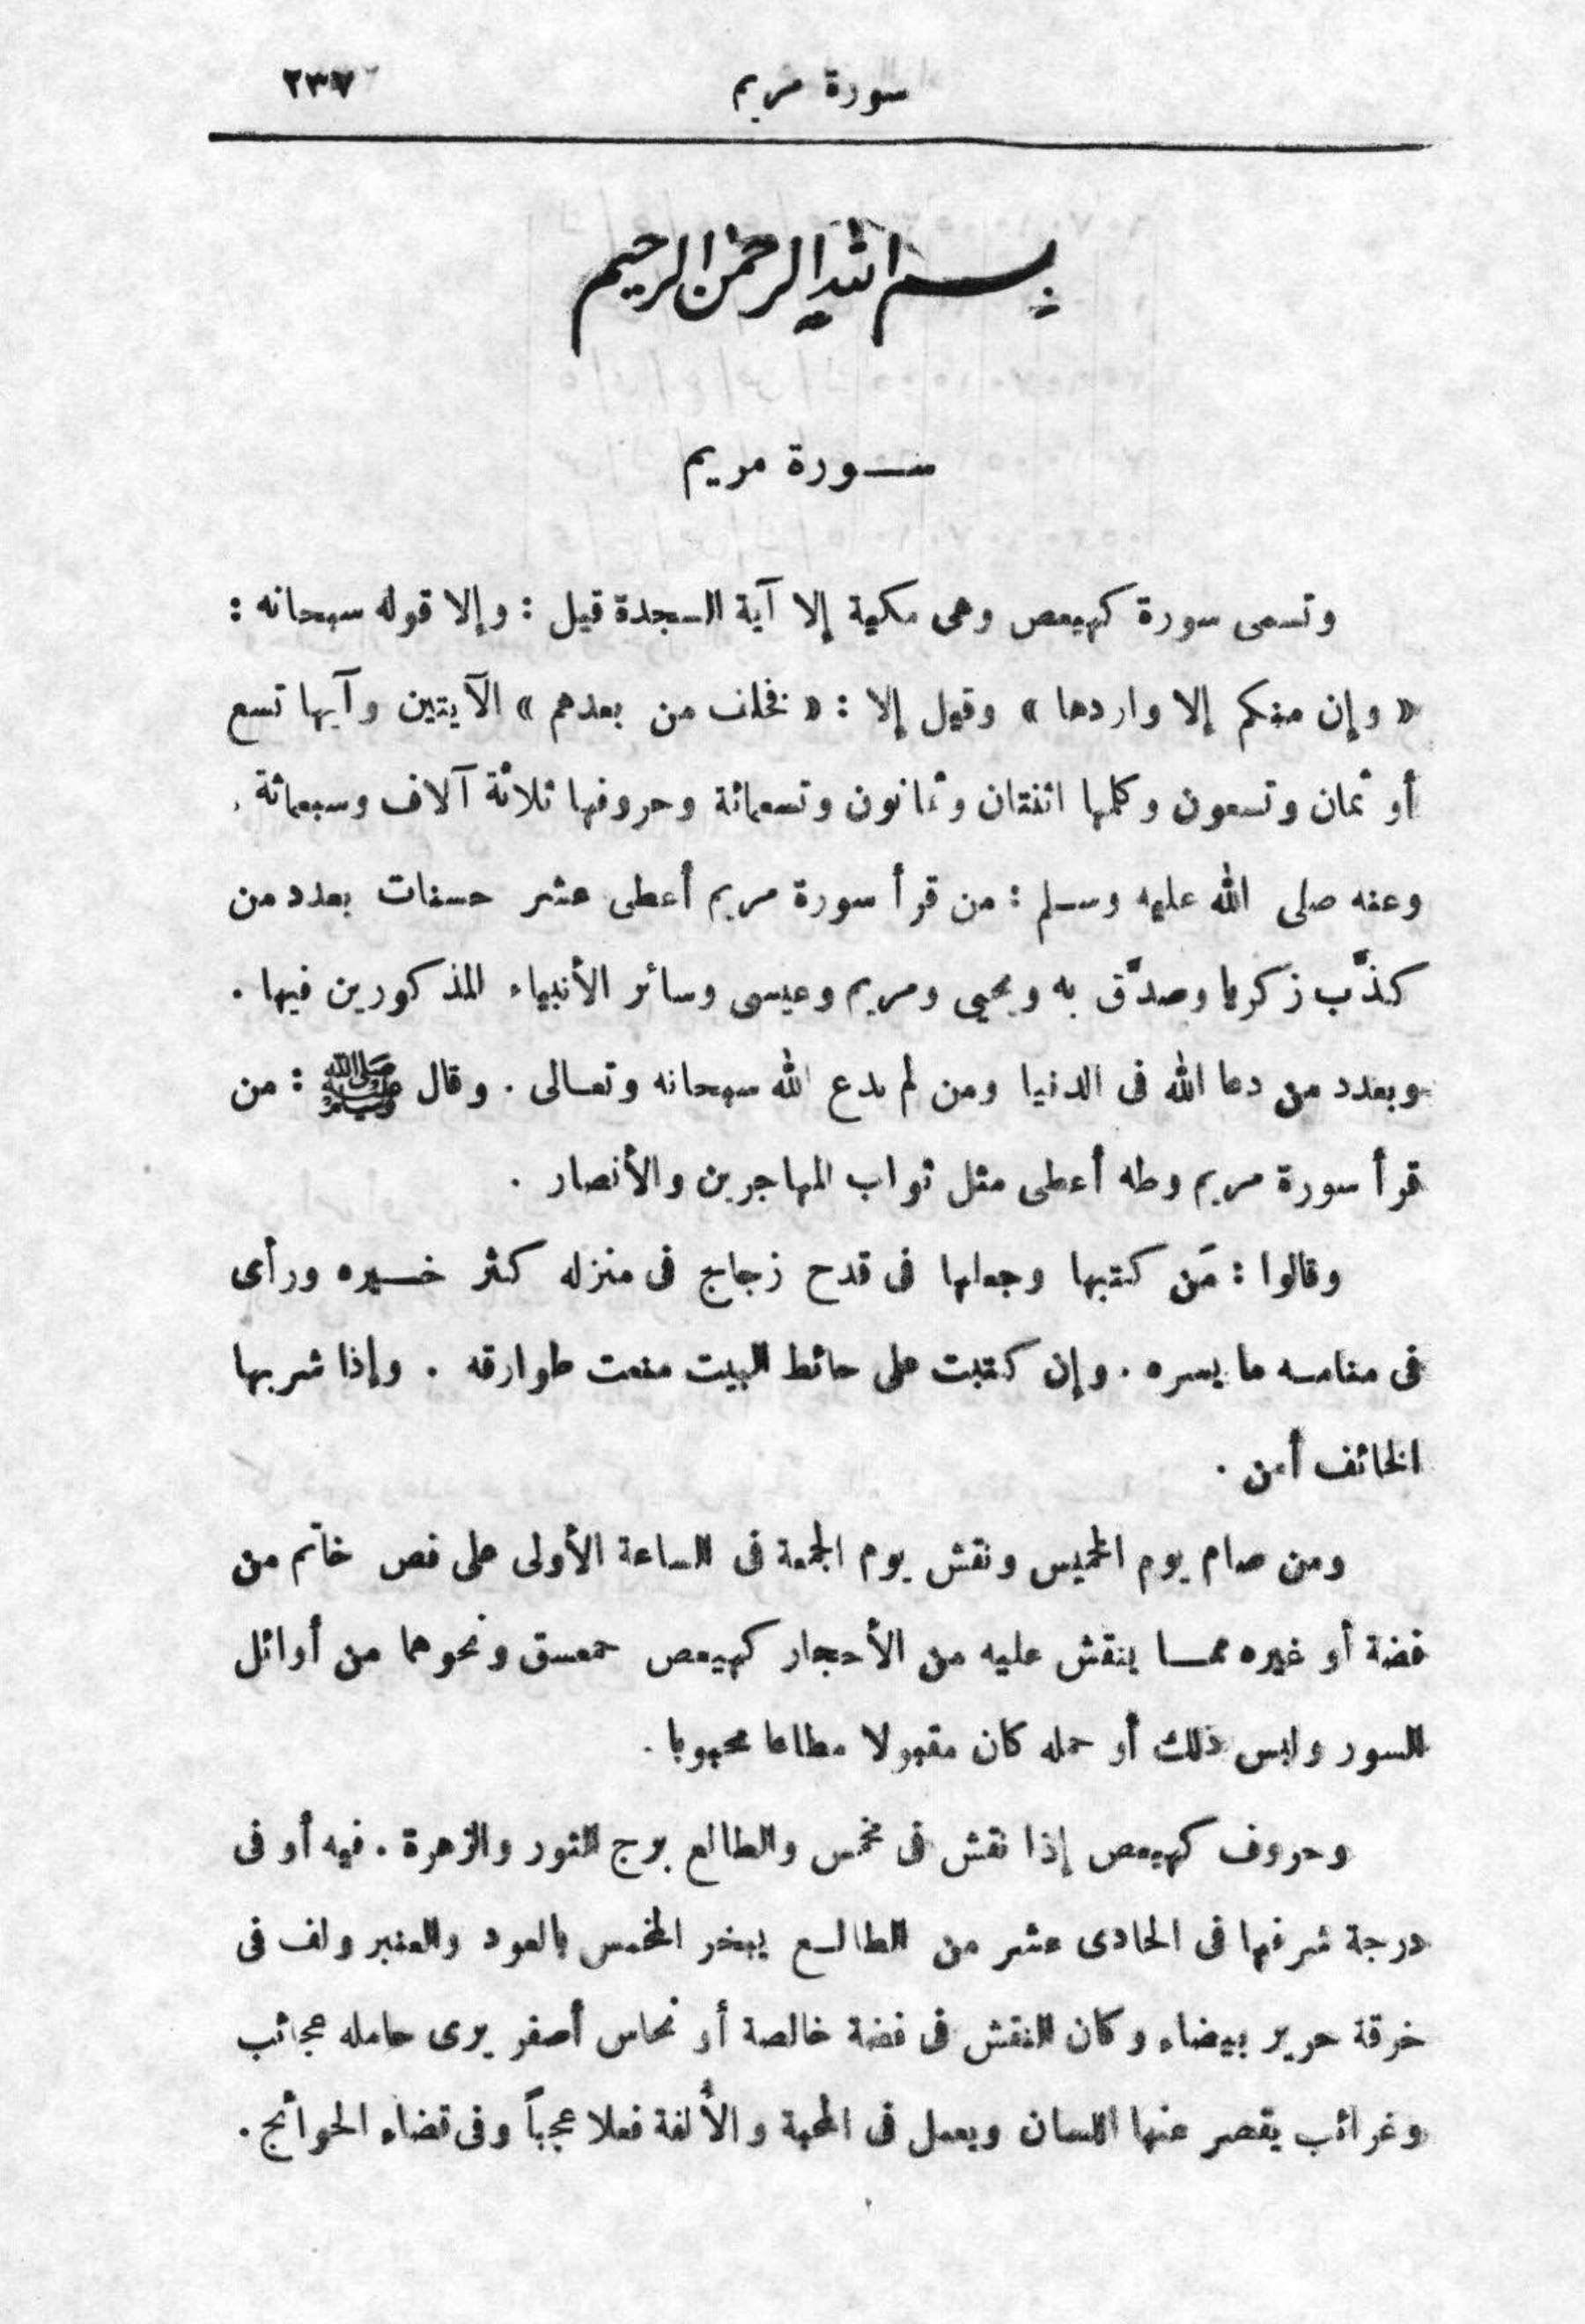 سورة مريم ٢٣٧
بسم الله الرحمن الرحيم
ســورة مريم
وتسمى سورة كهيعص وهى مكية إلا آية السجدة قيل : وإلا قوله سبحانه :
« وإن منكم إلا واردها » وقيل إلا : « فخلف من بعدهم » الآيتين وآيها تسع
أو ثمان وتسعون وكلمها اثنتان وثمانون وتسعمائة وحروفها ثلاثة آلاف وسبعمائة .
وعنه صلى الله عليه وسلم : من قرأ سورة مريم أعطى عشر حسنات بعدد من
كذَّب زكريا وصدَّق به ويحيى ومريم وعيسى وسائر الأنبياء المذكورين فيها .
وبعدد من دعا الله فى الدنيا ومن لم يدع الله سبحانه وتعالى . وقال ﷺ : من
قرأ سورة مريم وطه أعطى مثل ثواب المهاجرين والأنصار .
وقالوا : مَن كتبها وجعلها فى قدح زجاج فى منزله كثر خيره ورأى
فى منامه ما يسره . وإن كتبت على حائط البيت منعت طوارقه . وإذا شربها
الخائف أمن .
ومن صام يوم الخميس ونقش يوم الجمعة فى الساعة الأولى على فص خاتم من
فضة أو غيره مما ينقش عليه من الأحجار كهيعص حمعسق ونحوهما من أوائل
السور ولبس ذلك أو حمله كان مقبولا مطاعا محبوبا .
وحروف كهيعص إذا نقش فى مخمس والطالع برج الثور والزهرة . فيه أو فى
درجة شرفها فى الحادى عشر من الطالع يبخر المخمس بالعود والعنبر ولف فى
خرقة حرير بيضاء وكان النقش فى فضة خالصة أو نحاس أصفر يرى حامله عجائب
وغرائب يقصر عنها اللسان ويعمل فى المحبة والأُلفة فعلا عجباً وفى قضاء الحوائج .